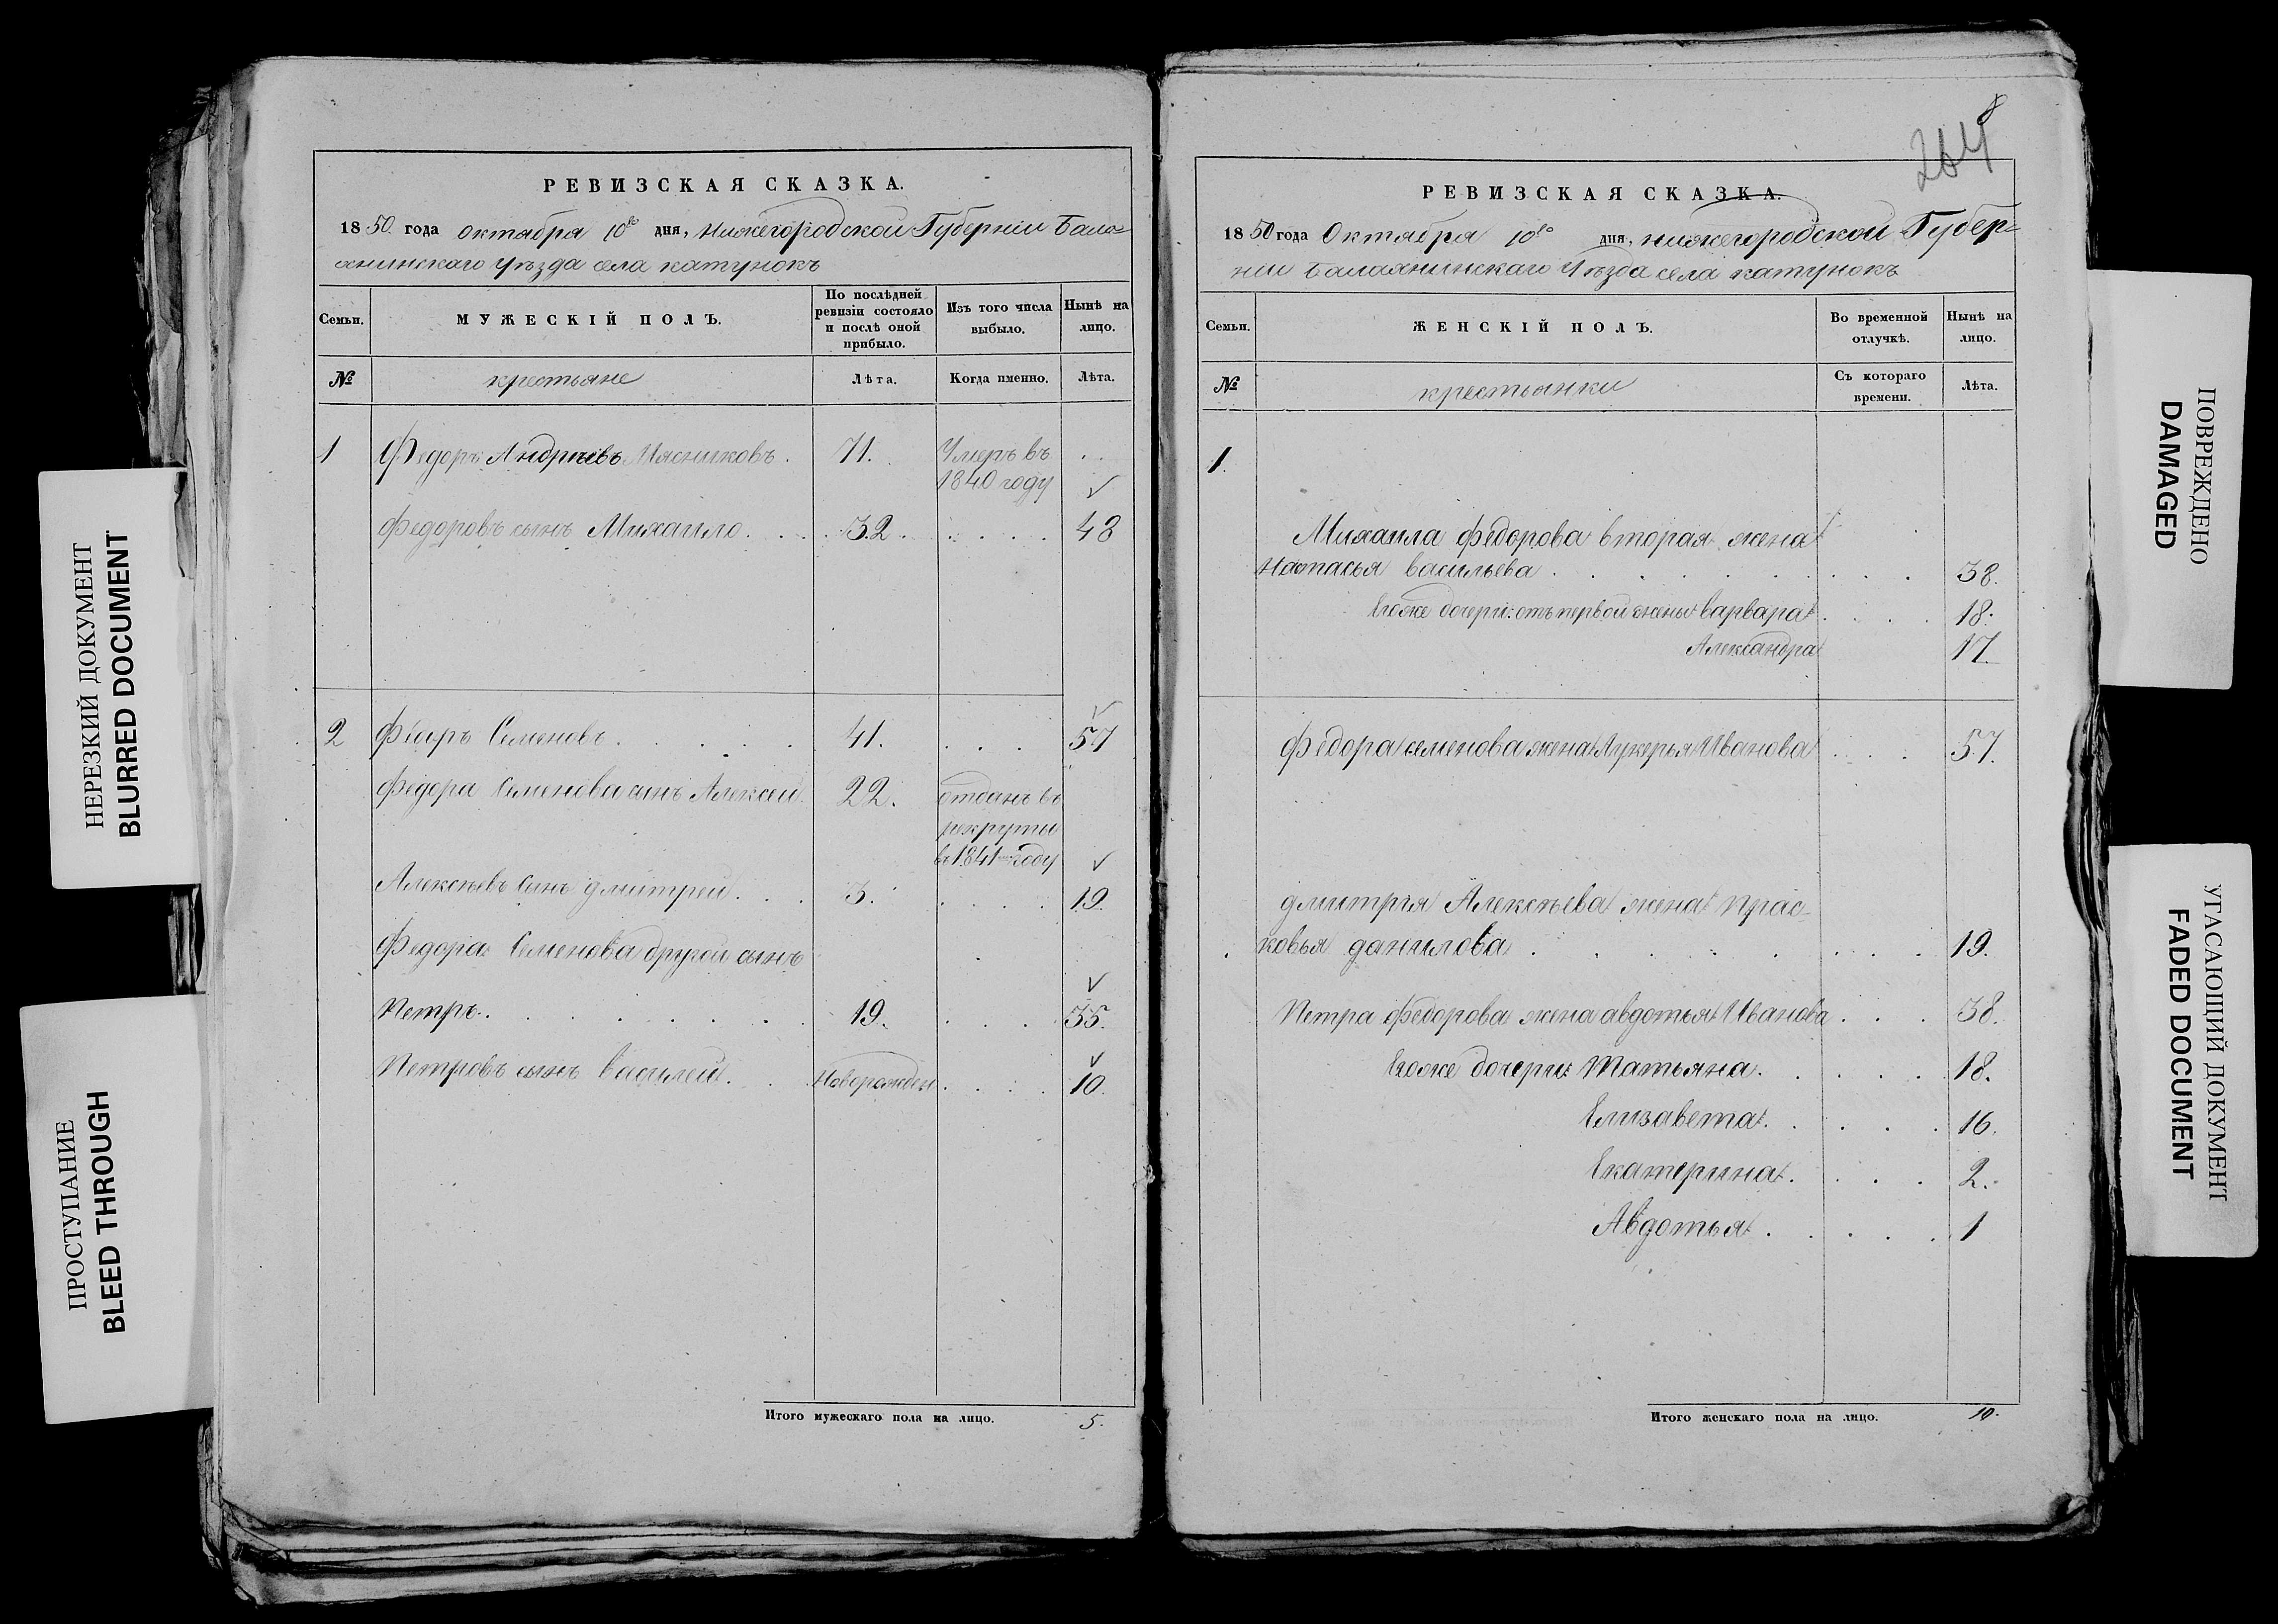 НЕРЕЗКИЙ ДОКУМЕНТ
BLURRED DOCUMENT
ПРОСТУПАНИЕ
BLEED THROUGH
РЕВИЗСКАЯ СКАЗКА.
1850 года октября 10го дня, Нижегородской Губернии Бала=
хнинскаго Уѣзда села катунокъ
Семьи. МУЖЕСКІЙ ПОЛЪ. По послѣдней ревизіи состояло и послѣ оной прибыло. Изъ того числа выбыло. Нынѣ на лицо.
№ крестьяне Лѣта. Когда именно. Лѣта.
1 Федоръ Андрѣевъ Мясниковъ. 71. Умеръ въ
1840 году
Федоровъ сынъ Михаило. 32. 48
2 Федоръ Семеновъ. 41. 57
Федора Семенова сынъ Алексей. 22. отданъ въ
рекруты
въ 1841 году
Алексѣевъ сынъ дмитрей. 3. 19.
Федора Семенова другой сынъ
Петръ. 19. 35.
Петровъ сынъ Василей. Новорожден. 10.
Итого мужескаго пола на лицо. 5.
264
8
РЕВИЗСКАЯ СКАЗКА.
1850 года Октября 10го дня, нижегородской Губер=
нии Балахнинскаго Уѣзда села катунокъ
Семьи. ЖЕНСКІЙ ПОЛЪ. Во временной отлучкѣ. Нынѣ на лицо.
№ крестьянки Съ котораго времени. Лѣта.
1.
Михаила федорова вторая жена
Настасья васильева 38.
Егоже дочери: отъ первой жены варвара 18.
Александра 17.
Федора семенова жена Лукерья Иванова 57.
дмитрія Алексѣева жена прас-
ковья данилова 19.
Петра федорова жена авдотья Иванова 38.
Егоже дочери: Татьяна. 18.
Елизавета. 16.
Екатерина. 2.
Авдотья. 1
Итого женскаго пола на лицо. 10.
ПОВРЕЖДЕНО
DAMAGED
УГАСАЮЩИЙ ДОКУМЕНТ
FADED DOCUMENT